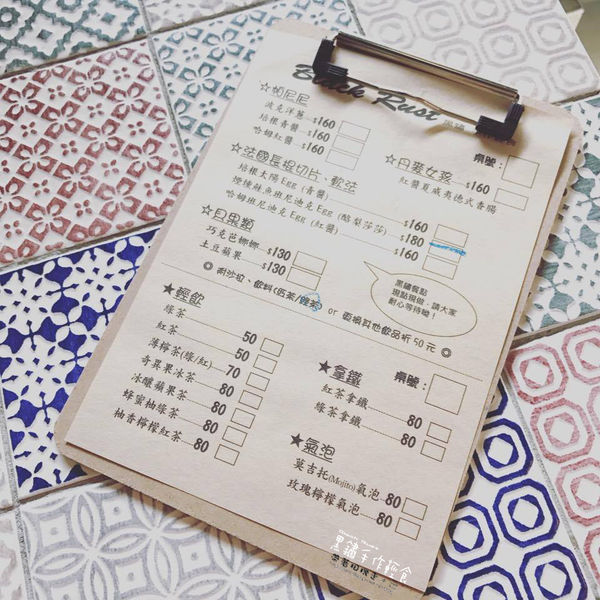 Black Rust
☆帕尼尼
波克洋蔥 $160
培根青醬 $160
哈姆紅醬 $160
桌號：
☆丹麥女孩
紅醬夏威夷德式香腸 $160
☆法國長棍切片、軟法
培根太陽Egg（青醬） $160
燻鮭魚班尼迪克Egg（酪梨莎莎） $180
哈姆班尼迪克Egg（紅醬） $160
☆貝果類
巧克芭娜娜 $130
土豆蘋果 $130
or 更換其他飲品折50元◎
黑鏽餐點
現點現做，請大家
耐心等待呦！
★輕飲
綠茶 50
紅茶 50
薄檸茶(綠/紅) 70
奇異果冰茶 80
冰釀蘋果茶 80
蜂蜜柚綠茶 80
柚香檸檬紅茶 80
★拿鐵
桌號：
紅茶拿鐵 80
綠茶拿鐵 80
★氣泡
莫吉托(Mojito)氣泡 80
玫瑰檸檬氣泡 80
黑鏽手作輕食